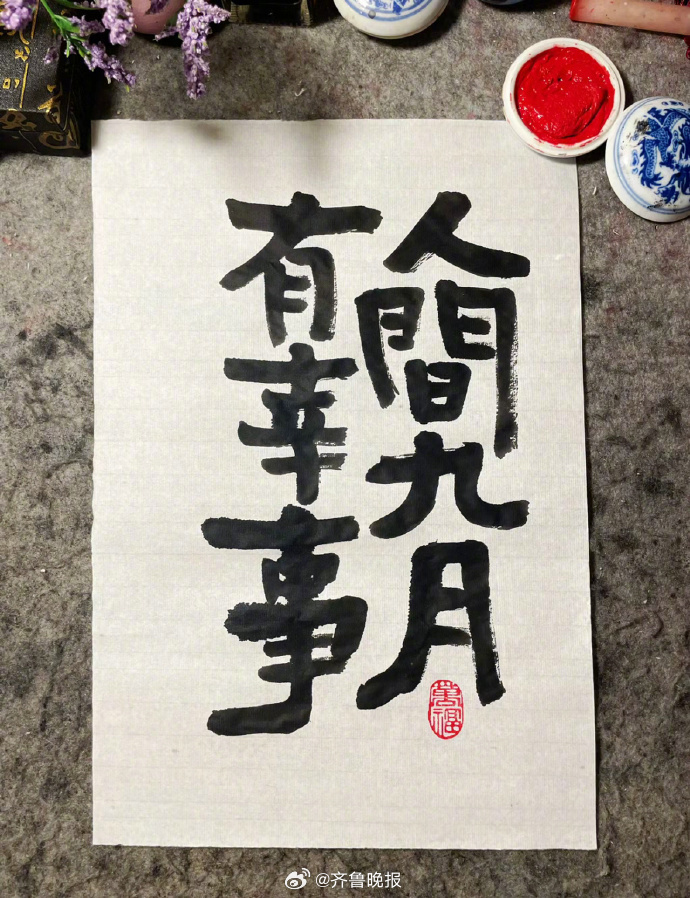 人間九月
有幸事
@齐鲁晚报